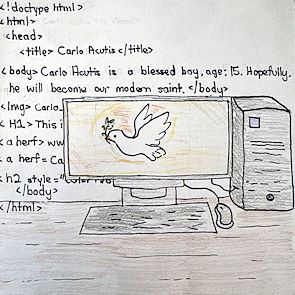 <!doctype html>
<html>
<head>
<title> Carlo Acutis </title>
<body> Carlo Acutis is a blessed boy, age; 15. Hopefully,
he will become our modern saint. </body>
<Img> Carlo
< H1> This i
< a herf> ww
< a herf= Ca
< h2 style="color
</body>
</html>